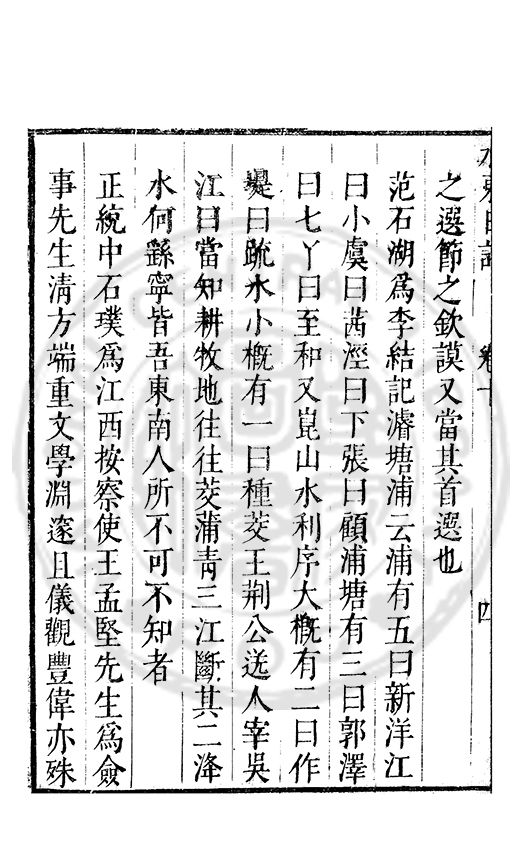 水東日記 卷十 四
之選節之欽謨又當其首選也
范石湖爲李結記濬塘浦云浦有五曰新洋江
曰小虞曰茜涇曰下張曰顧浦塘有三曰郭澤
曰七丫曰至和又崑山水利序大槪有二曰作
堤曰疏水小槪有一曰種茭王荆公送人宰吳
江曰當知耕牧地往往茭蒲靑三江斷其二洚
水何繇寧皆吾東南人所不可不知者
正統中石璞爲江西按察使王孟堅先生爲僉
事先生淸方端重文學淵邃且儀觀豐偉亦殊